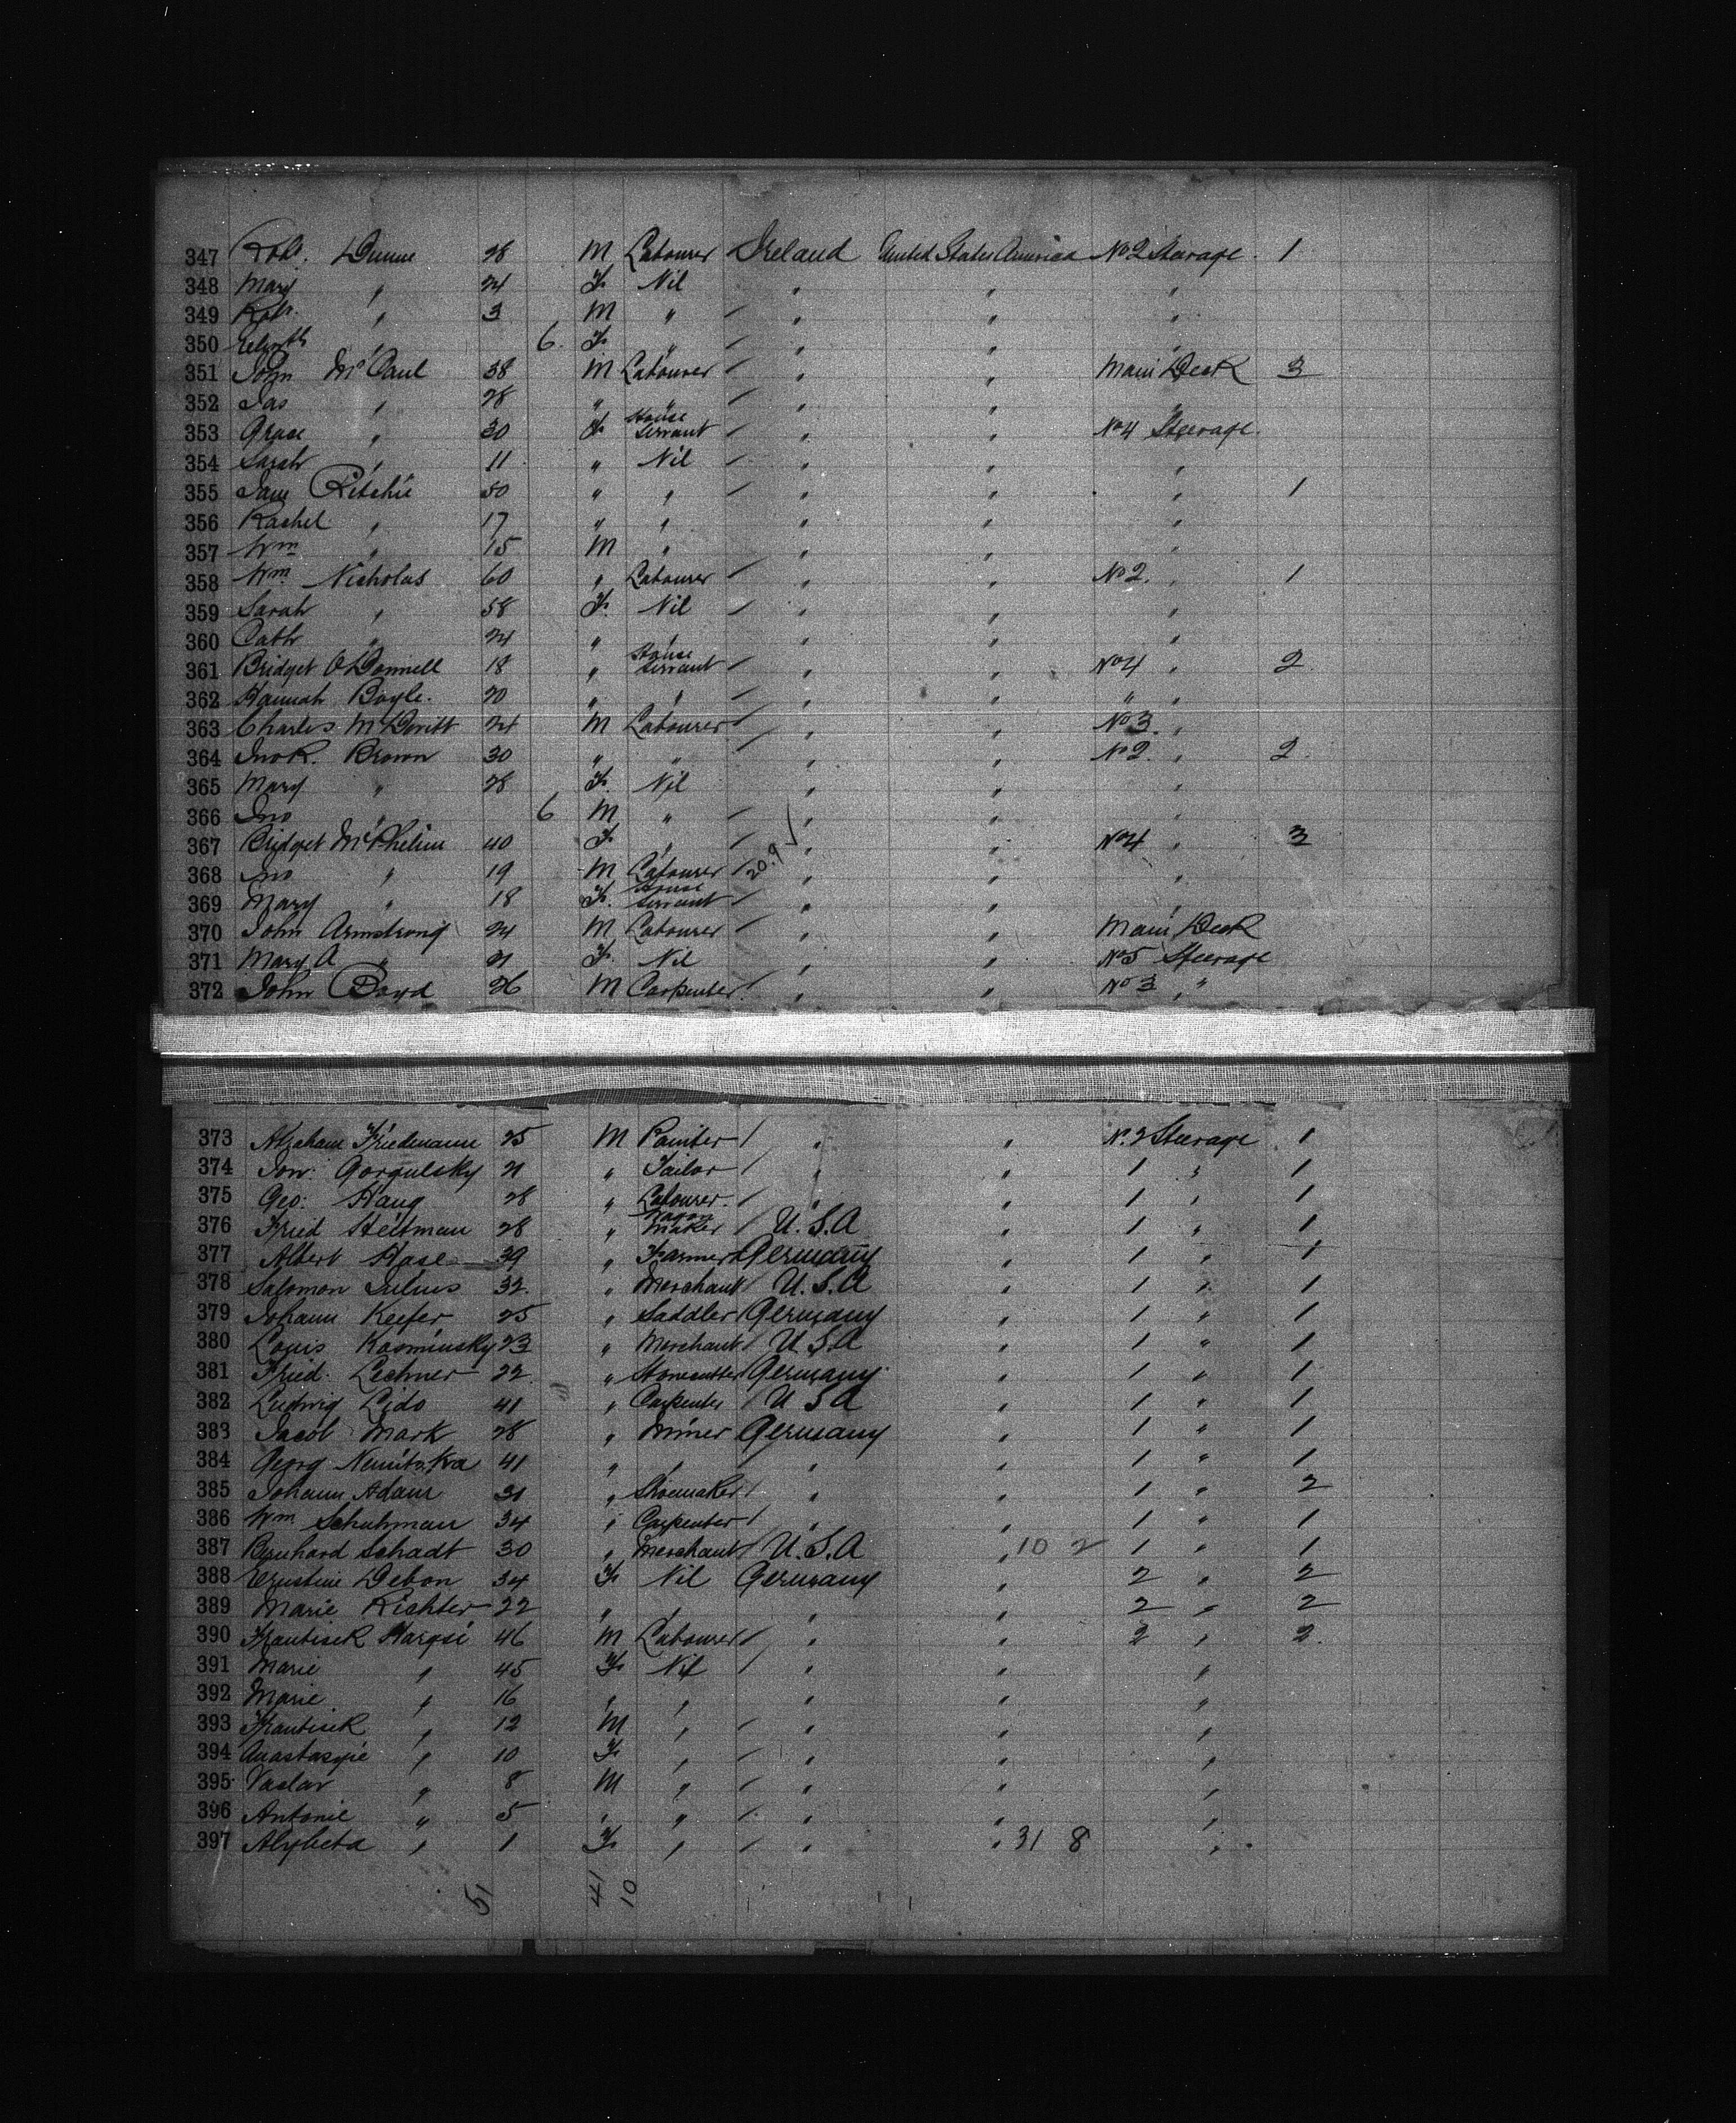 347 Robt. Dunne 28 M Labourer Ireland United States America No 2 Steerage 1
348 Mary " 24 F. Nil " " "
349 Robt. " 3 M " " " "
350 " 6. F. " " " "
351 John McCaul 38 M Labourer " " Main Deck 3
352 Jas " 28 " " " " "
353 Grace " 30 F. House Servant " " No 4 Steerage.
354 Sarah " 11 " Nil " " "
355 Jane Ritchie 50 " " " " " 1
356 Rachel " 17 " " " " "
357 Wm " 15 M " " " "
358 Wm Nicholas 60 " Labourer " " No 2. " 1
359 Sarah " 58 F. Nil " " "
360 Cath " 24 " " " " "
361 Bridget O'Donnell 18 " House Servant " " No 4 " 2
362 Hannah Boyle. 20 " " " " " "
363 Charles McDevitt 24 M Labourer " " No 3. "
364 Jno R. Brown 30 " " " " No 2. " 2
365 Mary " 28 F. Nil " " "
366 Jno " 6 M " " " "
367 Bridget McPhelim 40 F. " " " No 4 " 3
368 Jno " 19 M Labourer 20.9 " " "
369 Mary " 18 F. House Servant " " "
370 John Armstrong 24 M Labourer " " Main Deck
371 Mary A " 21 F. Nil " " No 5 Steerage
372 John Boyd 26 M Carpenter " " No 3 " "
373 Abraham Friedemann 25 M Painter " " No. 2 Steerage 1
374 Gorgulsky 21 " Tailor " " 1 " 1
375 Geo: Haug 28 " Labourer. " " 1 " 1
376 Fried Heitman 28 " Wagon Maker U.S.A " 1 " 1
377 Albert Hase 39 " Farmer Germany " 1 " 1
378 Salomon Julius 32. " Merchant U.S.A " 1 " 1
379 Johann Keefer 25 " Saddler Germany " 1 " 1
380 Louis Kosminsky 23 " Merchant U.S.A " 1 " 1
381 Fried. Lechner 22. " Stonecutter Germany " 1 " 1
382 Ludwig Lido 41 " Carpenter U S A " 1 " 1
383 Jacob Mark 28 " Miner Germany " 1 " 1
384 Georg 41 " " " " 1 " 1
385 Johann Adam 31 " Shoemaker " " 1 " 2
386 Wm Schuhman 34 " Carpenter " " 1 " 1
387 Bernhard Schadt 30 " Merchant U.S.A " 10 2 1 " 1
388 Ernstine Debon 34 F. Nil Germany " 2 " 2
389 Marie Richter 22 " " " " 2 " 2
390 Frantisek Hargsi 46 M Labourer " " 2 " 2.
391 Marie " 45 F. Nil " " "
392 Marie " 16 " " " " "
393 Frantisek " 12 M " " " "
394 Anastasyie " 10 F. " " " "
395 Vaslav " 8 M " " " "
396 Antonie " 5 " " " " "
397 Alzbeta " 1 F. " " " 31 8 "
51 41 10